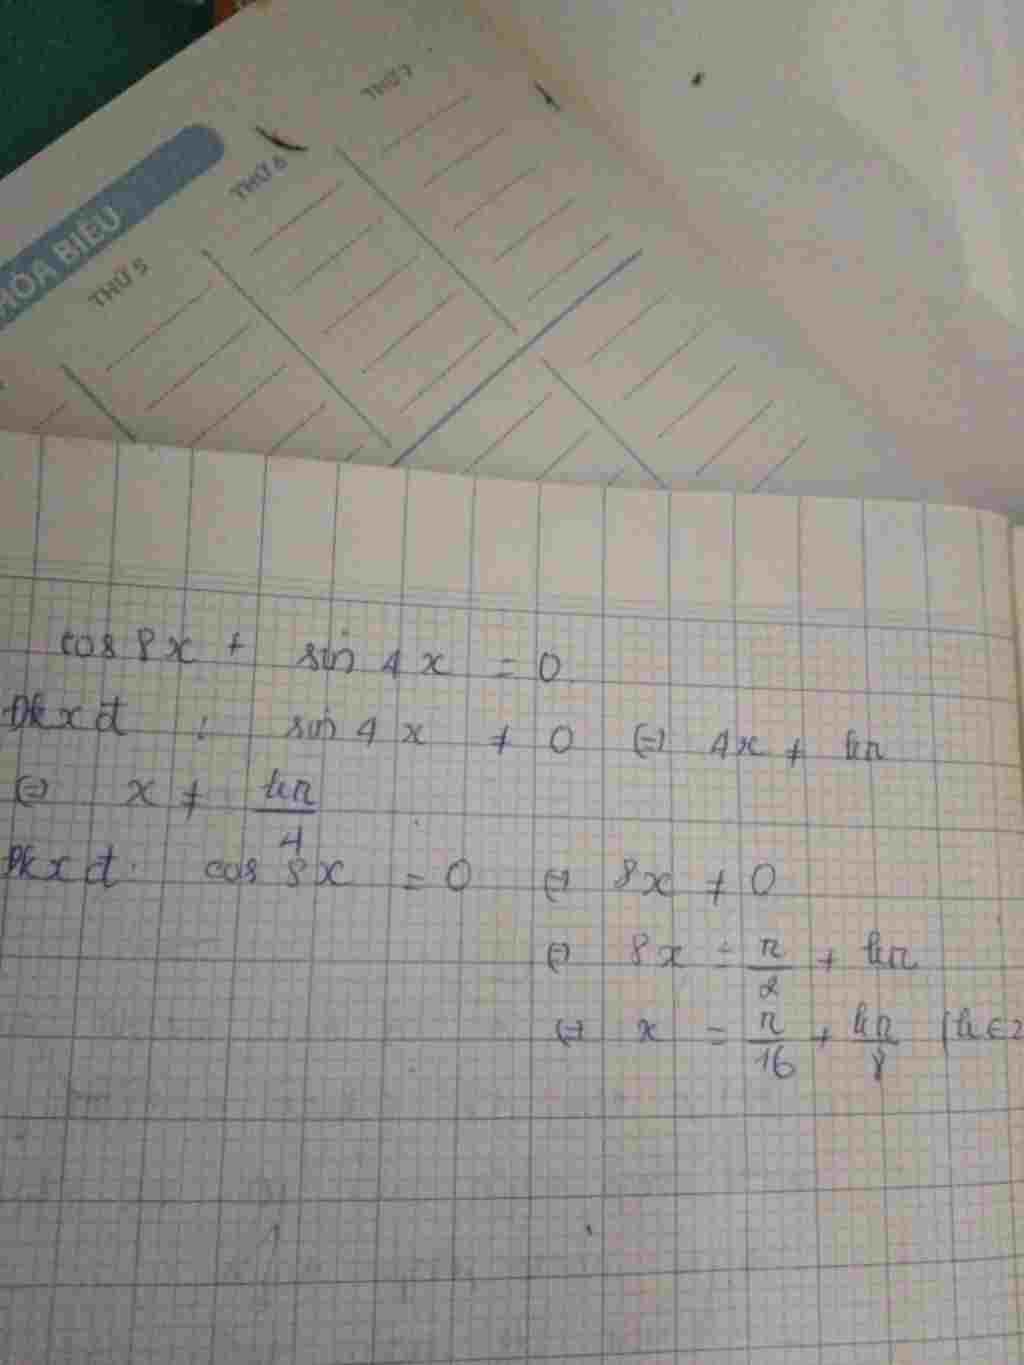 THỨ 7
THỨ 6
HÓA BIỂU
THỨ 5
cos 8x + sin 4x = 0
Đkxđ : sin 4x ≠ 0 (=) 4x ≠ kπ
(=) x ≠ kπ/4
Đkxđ: cos 8x = 0 (=) 8x ≠ 0
(=) 8x = π/2 + kπ
(=) x = π/16 + kπ/8 (k ∈ Z